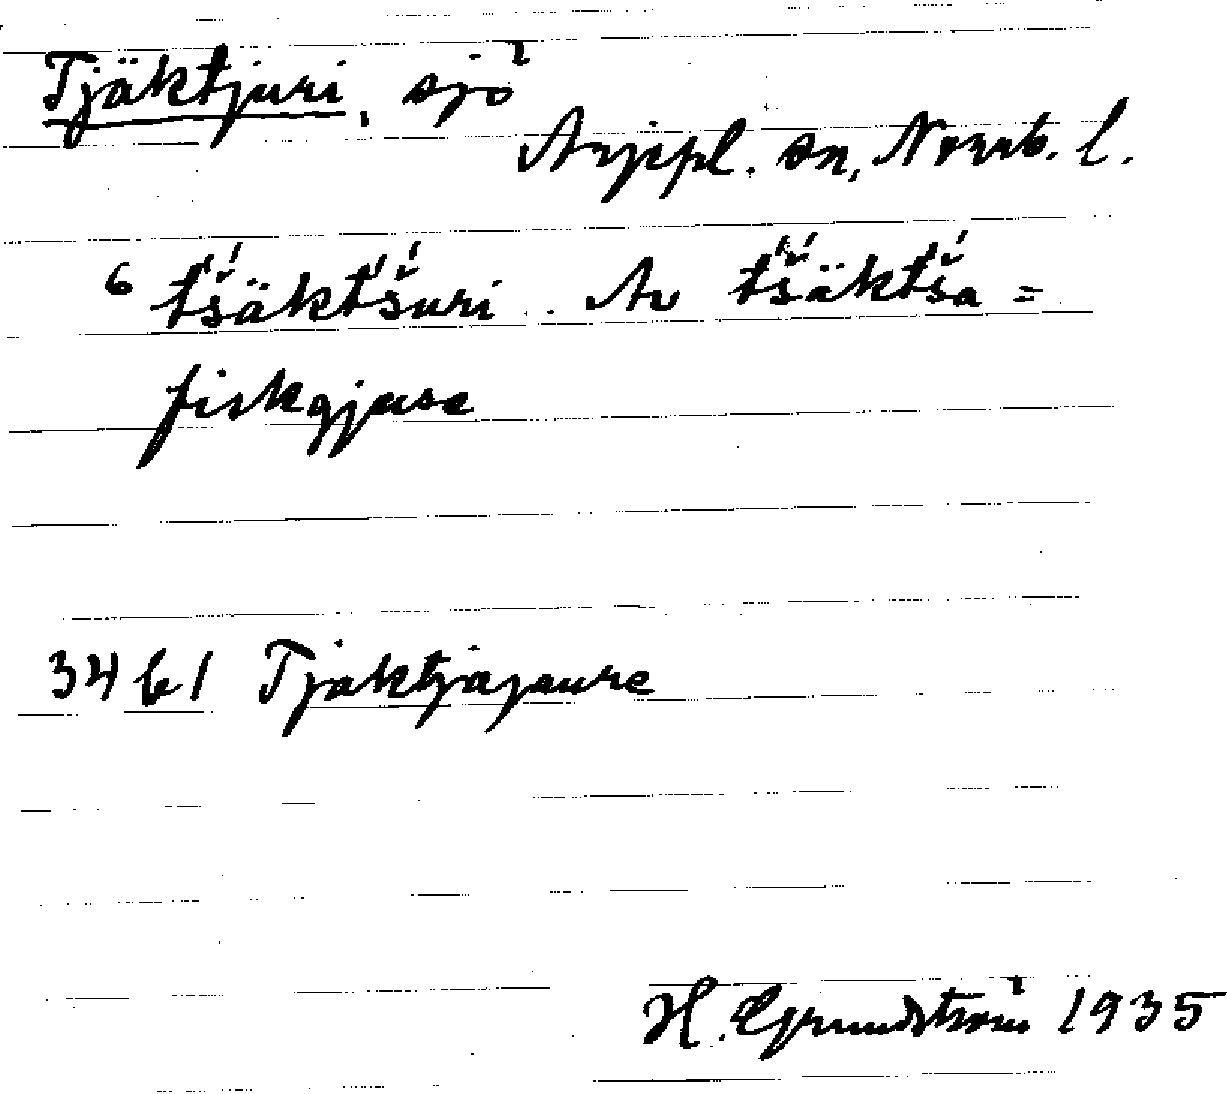 Tjäktjuri, sjö
Arjepl. sn, Norrb. l.
6 t́šäkt́šuri. Av t́šäkt́ša =
fiskgjuse
34 b1 Tjäktjajaure
H. Grundström 1935